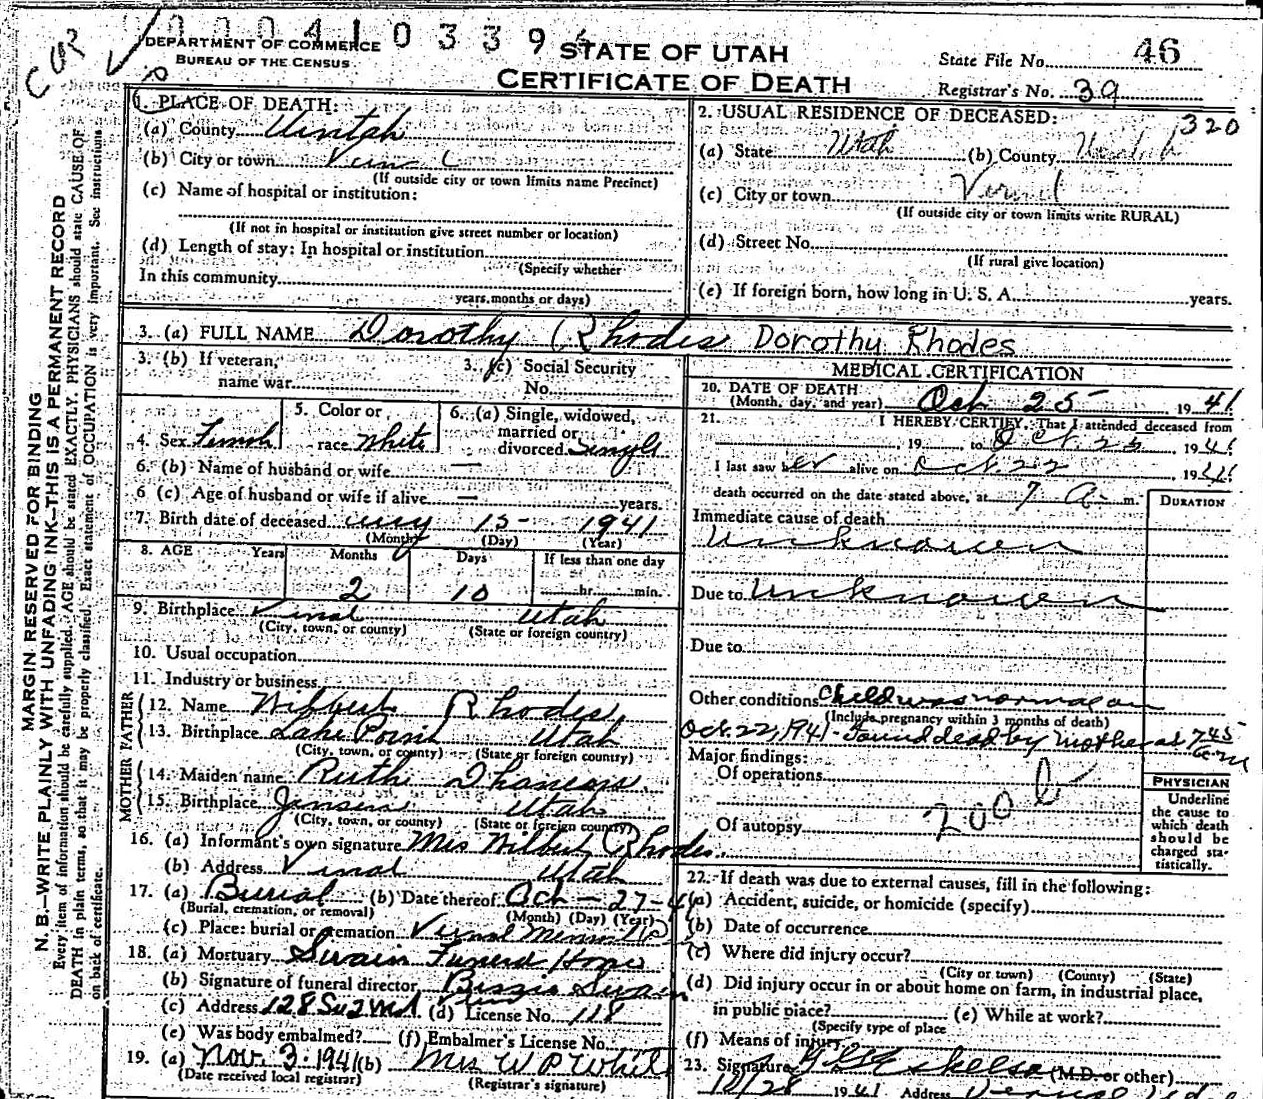 0 0 0 4 1 0 3 3 9
CUR
DEPARTMENT OF COMMERCE
BUREAU OF THE CENSUS
STATE OF UTAH
CERTIFICATE OF DEATH
State File No. 46
Registrar's No. 39
MARGIN RESERVED FOR BINDING
N. B.—WRITE PLAINLY WITH UNFADING INK—THIS IS A PERMANENT RECORD
Every item of information should be carefully supplied. AGE should be stated EXACTLY. PHYSICIANS should state CAUSE OF
DEATH in plain terms, so that it may be properly classified. Exact statement of OCCUPATION is very important. See instructions
on back of certificate.
1. PLACE OF DEATH:
(a) County Uintah
(b) City or town Vernal
(If outside city or town limits name Precinct)
(c) Name of hospital or institution:
(If not in hospital or institution give street number or location)
(d) Length of stay: In hospital or institution
(Specify whether
In this community
years, months or days)
2. USUAL RESIDENCE OF DECEASED:
320
(a) State Utah (b) County Uintah
(c) City or town Vernal
(If outside city or town limits write RURAL)
(d) Street No.
(If rural give location)
(e) If foreign born, how long in U. S. A. years.
3. (a) FULL NAME Dorothy Rhodes Dorothy Rhodes
3. (b) If veteran,
name war
3. (c) Social Security
No.
4. Sex Female
5. Color or
race White
6. (a) Single, widowed,
married or
divorced Single
6. (b) Name of husband or wife —
6 (c) Age of husband or wife if alive — years.
7. Birth date of deceased Aug 15 1941
(Month) (Day) (Year)
8. AGE Years Months Days If less than one day
2 10 hr. min.
9. Birthplace Vernal Utah
(City, town, or county) (State or foreign country)
10. Usual occupation
11. Industry or business
FATHER
12. Name Wilbert Rhodes
13. Birthplace Lake Point Utah
(City, town, or county) (State or foreign country)
MOTHER
14. Maiden name Ruth
15. Birthplace Jensen Utah
(City, town, or county) (State or foreign country)
16. (a) Informant's own signature Mrs Wilbert Rhodes
(b) Address Vernal Utah
17. (a) Burial (b) Date thereof Oct - 27-41
(Burial, cremation, or removal) (Month) (Day) (Year)
(c) Place: burial or cremation Vernal Memorial P
18. (a) Mortuary Swain Funeral Home
(b) Signature of funeral director Bizzie Swain
(c) Address 128 Su 2nd Vern (d) License No. 118
(e) Was body embalmed? (f) Embalmer's License No.
19. (a) Nov. 3. 1941 (b) Mrs W P White
(Date received local registrar) (Registrar's signature)
MEDICAL CERTIFICATION
20. DATE OF DEATH
(Month, day, and year) Oct 25 1941
21. I HEREBY CERTIFY, That I attended deceased from
19 to Oct. 25 1941
I last saw her alive on Oct. 22 1941
death occurred on the date stated above, at 7 A. m.
DURATION
Immediate cause of death
Unknown
Due to Unknown
Due to
Other conditions Child was normal on
(Include pregnancy within 3 months of death)
Oct. 22, 1941 - Found dead by mother at 7 45 a.m
Major findings:
Of operations
200
Of autopsy
PHYSICIAN
Underline
the cause to
which death
should be
charged sta-
tistically.
22. If death was due to external causes, fill in the following:
(a) Accident, suicide, or homicide (specify)
(b) Date of occurrence
(c) Where did injury occur?
(City or town) (County) (State)
(d) Did injury occur in or about home on farm, in industrial place,
in public place? (e) While at work?
(Specify type of place
(f) Means of injury
23. Signature (M.D. or other)
10/28 1941 Address Vernal Utah